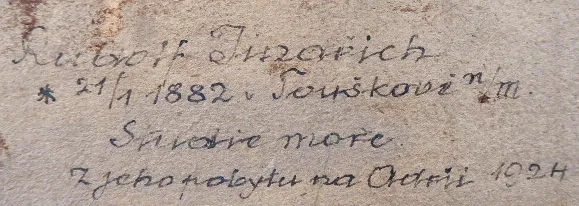 Rudolf Jindřich
* 21/1 1882 v Touškově n/M.
Studie moře
Z jeho pobytu na Adrii 1924